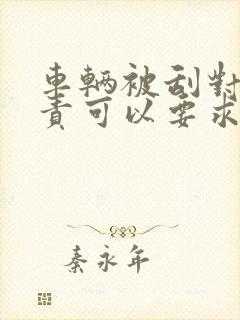 車輛被刮對
責可以要求
秦永年